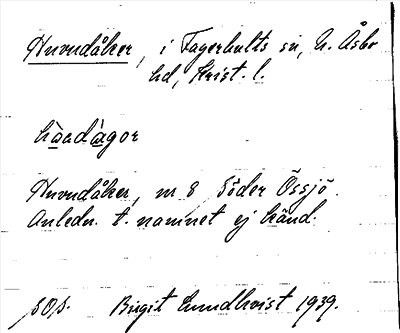 Huvudåker, i Fagerhults sn, N. Åsbo
hd, Krist. l.
Huvudåker, m 8 Söder Össjö.
Anledn. t. namnet ej känd.
Birgit Lundkvist 1939.